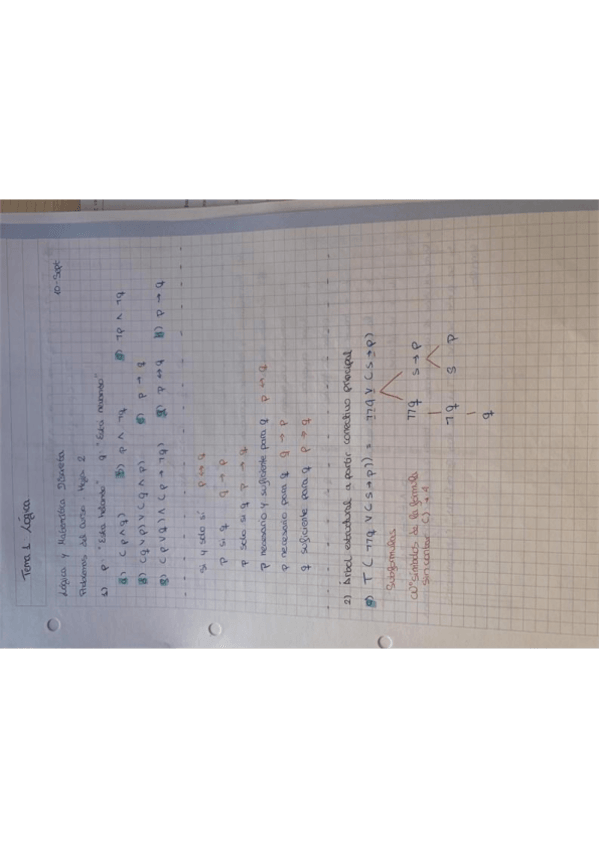 Tema 1 Lógica
Lógica y Matemática Discreta 20-Sept
Problemas del curso. Hoja 2
1) p "Está helando" q "Está nevando"
a) (p ∧ q) b) p ∧ ¬q c) ¬p ∧ ¬q
(q ∨ p) ∨ (q ∧ p) p → q
(p ∨ q) ∧ (p → ¬q) p ↔ q p → q
si y solo si p ↔ q
p si q q → p
p solo si q p → q
p necesario y suficiente para q p ↔ q
p necesario para q q → p
q suficiente para q p → q
2) Árbol estructural a partir conectivo principal
a) T (¬¬q ∨ (s → p)) = ¬¬q ∨ (s → p)
Subfórmulas
¬¬q s → p
símbolos de la fórmula
sin contar ( ) → 4
¬q s p
q